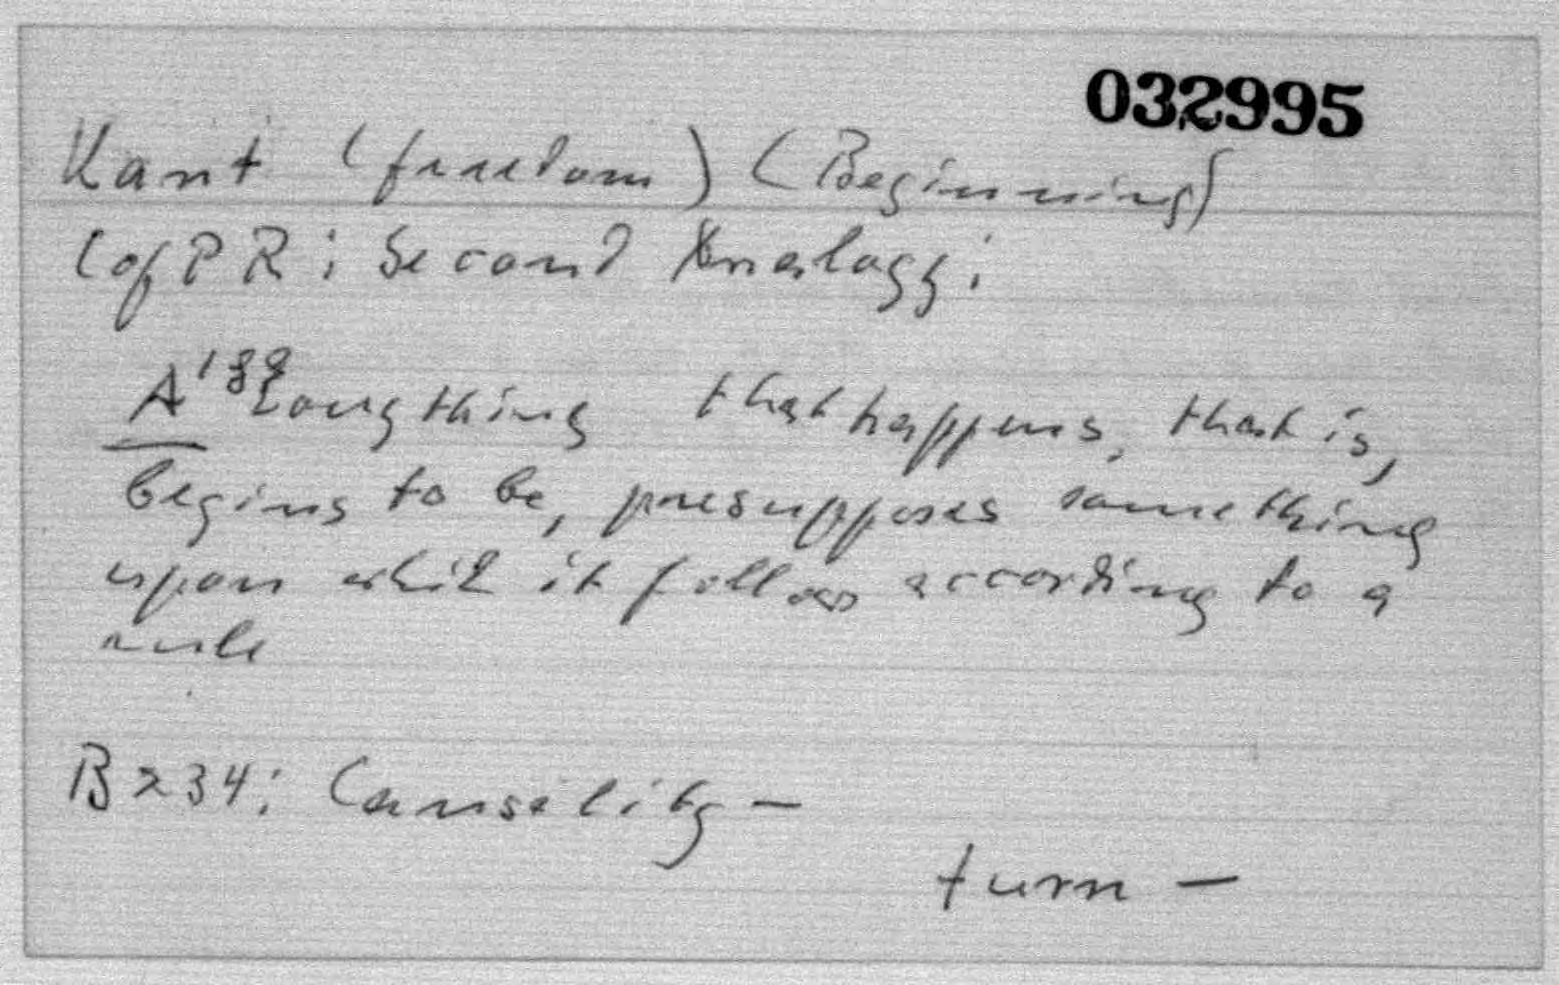 032995
Kant (freedom) (Beginning)
CofPR: Second Analogy:
A 189 Everything that happens, that is,
begins to be, presupposes something
upon which it follows according to a
rule
B 234: Causality –
turn –